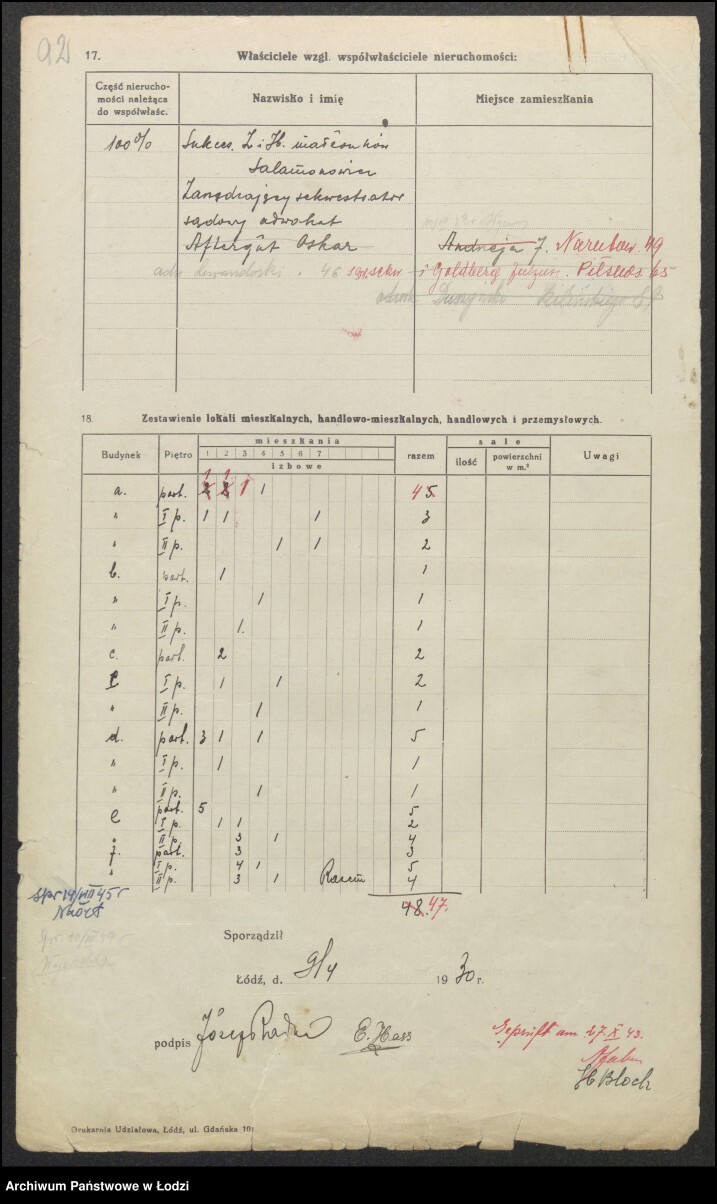 92
17. Właściciele wzgl. współwłaściciele nieruchomości:
Część nierucho-
mości należąca
do współwłaśc.
Nazwisko i imię
Miejsce zamieszkania
100% Sukces. Z i H. małżonków
Salamonowicz
Zarządzający sekwestrator
sądowy adwokat
Aftergut Oskar Andrzeja 7. Narutow. 49
46 i Goldberg Piłsuds 65
Kilińskiego
18. Zestawienie lokali mieszkalnych, handlowo-mieszkalnych, handlowych i przemysłowych.
Budynek Piętro mieszkania razem sale Uwagi
1 2 3 4 5 6 7 ilość powierzchni
w m.²
izbowe
1 1
a. part. 2 2 1 1 4 5
" I p. 1 1 1 3
" II p. 1 1 2
b. part. 1 1
" I p. 1 1
" II p. 1. 1
c. part. 2 2
I p. 1 1 2
" II p. 1 1
d. part. 3 1 1 5
" I p. 1 1
" II p. 1 1
e part. 5 5
I p. 1 1 2
" II p. 3 1 4
f. part. 3 3
I p. 4 1 5
" II p. 3 1 Razem 4
48. 47.
Spr 14/VIII 45 r
Sporządził
Łódź, d. 9/4 1930 r.
podpis Józef E. Hass
Geprüft am 27. X. 43.
H Bloch
Drukarnia Udziałowa, Łódź, ul. Gdańska 101.
Archiwum Państwowe w Łodzi